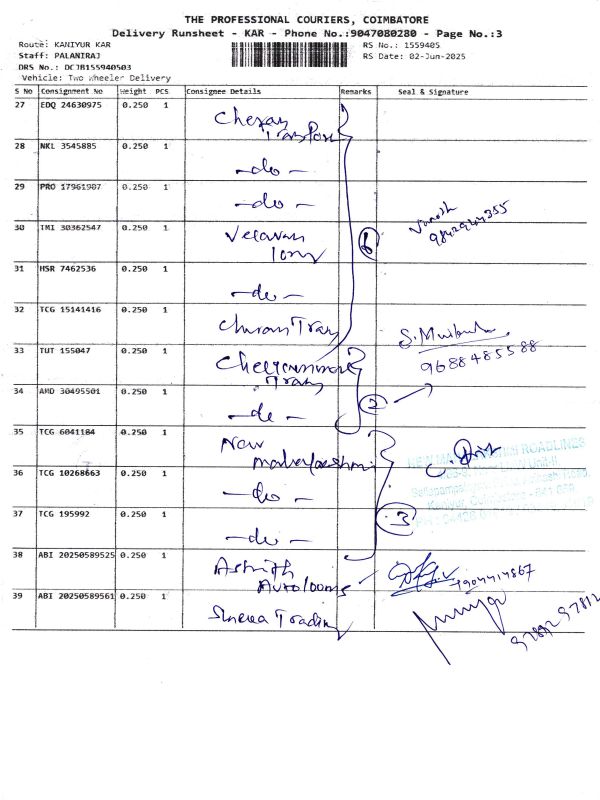 THE PROFESSIONAL COURIERS, COIMBATORE
Delivery Runsheet - KAR - Phone No.:9047080280 - Page No.:3
Route: KANIYUR KAR RS No.: 1559405
Staff: PALANIRAJ RS Date: 02-Jun-2025
DRS No.: DCJB155940503
Vehicle: Two Wheeler Delivery
S No Consignment No Weight PCS Consignee Details Remarks Seal & Signature
27 EDQ 24630975 0.250 1 Cheran
28 NKL 3545885 0.250 1 -do-
29 PRO 17961907 0.250 1 -do-
30 TMI 30362547 0.250 1 Velavan 6
9842944355
31 HSR 7462536 0.250 1 -do-
32 TCG 15141416 0.250 1
33 TUT 155047 0.250 1
9688485588
34 AMD 30495501 0.250 1 -do- 2
35 TCG 6041184 0.250 1 New
36 TCG 10268663 0.250 1 -do-
37 TCG 195992 0.250 1 -do- 3
38 ABI 20250589525 0.250 1
39 ABI 20250589561 0.250 1 Trading